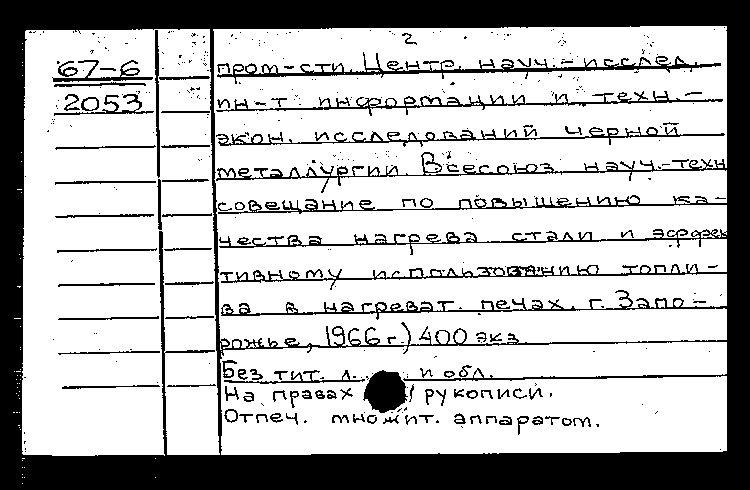 2
67-6
2053
пром-сти. Центр. науч.-исслед.
ин-т информации и техн.-
экон. исследований черной
металлургии. Всесоюз. науч.-техн
совещание по повышению ка-
чества нагрева стали и эффек
тивному использованию топли-
ва в нагреват. печах. г. Запо-
рожье, 1966 г.) 400 экз.
Без тит. л. и обл.
На правах рукописи.
Отпеч. множит. аппаратом.